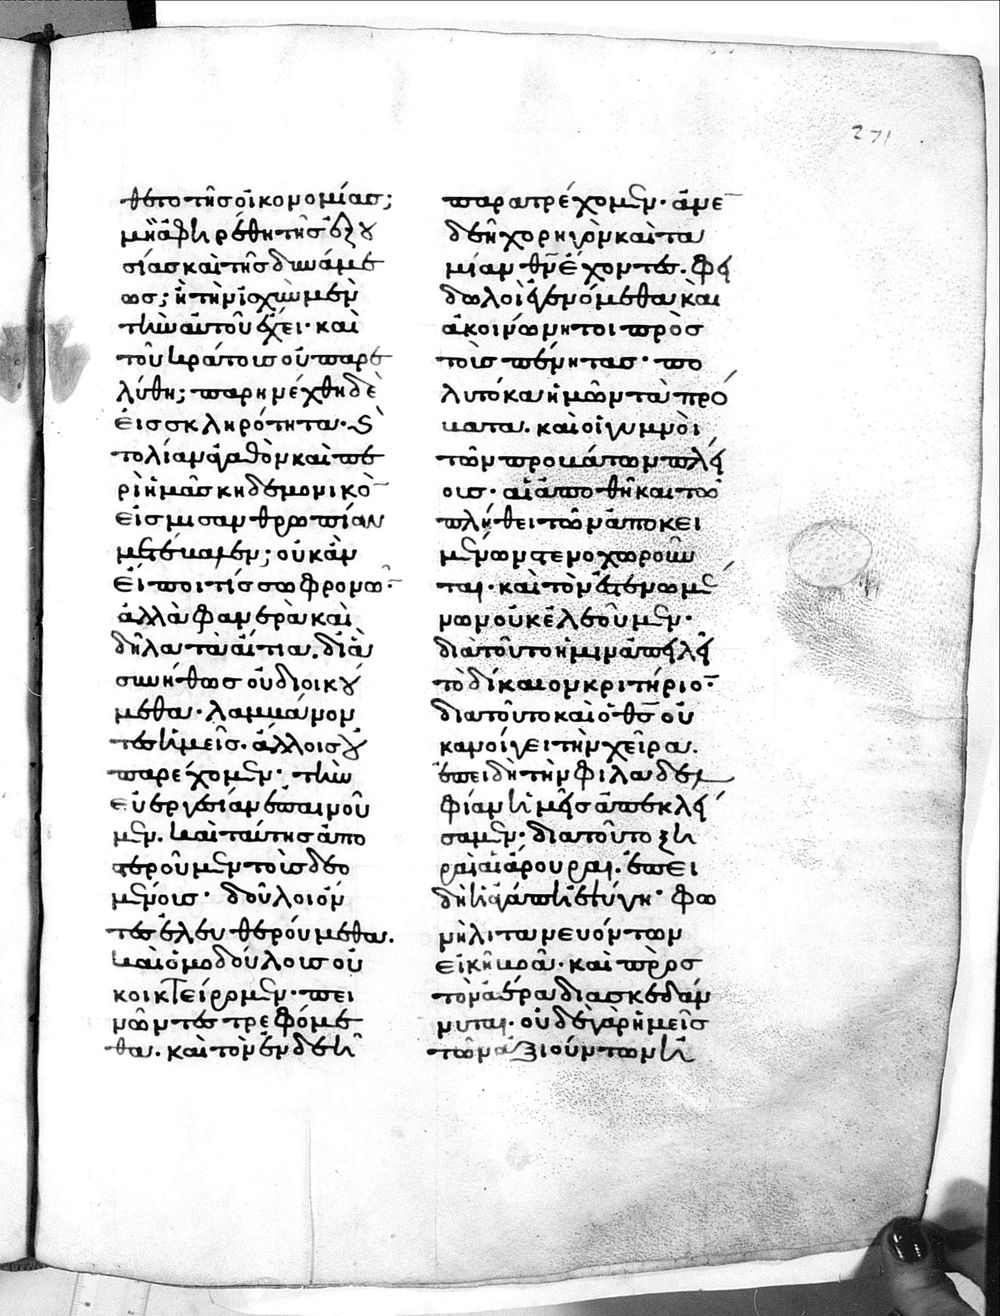 271
θετο τῆς οἰκονομίας;
μὴ ἀφηρέθη τῆς ἐξου
σίας καὶ τῆς δυνάμε
ως; ἢ τὴν ἰσχὺν μὲν
τὴν αὐτοῦ ἔχει· καὶ
τοῦ κράτους οὐ παρε
λύθη; παρηνέχθη δὲ
εἰς σκληρότητα· καὶ
τὸ λίαν ἀγαθὸν καὶ πε
ρὶ ἡμᾶς κηδεμονικὸν
εἰς μισανθρωπίαν
μετέβαλεν; οὐκ ἂν
εἴποι τίς σωφρονῶν·
ἀλλὰ φανερὰ καὶ
δῆλα τὰ αἴτια. δι' ἃ
συνήθως οὐ διοικού
μεθα· λαμβάνον
τες ἡμεῖς· ἄλλοις οὐ
παρέχομεν· τὴν
εὐεργεσίαν ἐπαινοῦ
μεν. καὶ ταύτης ἀπο
στεροῦμεν τοὺς δεο
μένους· δοῦλοι ὄν
τες ἐλευθερούμεθα.
καὶ ὁμοδούλους οὐ
κοικτείρομεν· πει
νῶντες τρεφόμε
θα. καὶ τὸν ἐνδεῆ
παρατρέχομεν· ἀνεν
δεῆ χορηγὸν καὶ τα
μίαν θν ἔχοντες. φει
δωλοὶ γενόμεθα καὶ
ἀκοινώνητοι πρὸς
τοὺς πένητας· πο
λυτόκα ἡμῶν τὰ πρό
βατα. καὶ οἱ γυμνοὶ
τῶν προβάτων πλεί
ους· αἱ ἀποθῆκαι τῶ
πλήθει τῶν ἀποκει
μένων στενοχωροῦν
ται· καὶ τὸν στενωμέ
νων οὐκ ἐλεοῦμεν·
διὰ τοῦτο ἡμῖν ἀπειλεῖ
τὸ δίκαιον κριτήριον·
διὰ τοῦτο καὶ ὁ θς οὐ
κ ἀνοίγει τὴν χεῖρα.
ἐπειδὴ τὴν φιλαδελ
φίαν ἡμεῖς ἀπεκλεί
σαμεν· διὰ τοῦτο ξη
ραὶ αἱ ἄρουραι. ἐπει
δὴ ἡ ἀγάπη ἐψύγη· φω
νὴ λιτανευόντων
εἰκῆ βοᾶ· καὶ πρὸς
τὸν ἀέρα διασκεδάν
νυται· οὐδὲ γὰρ ἡμεῖς
τῶν ἀξιούντων ἡ